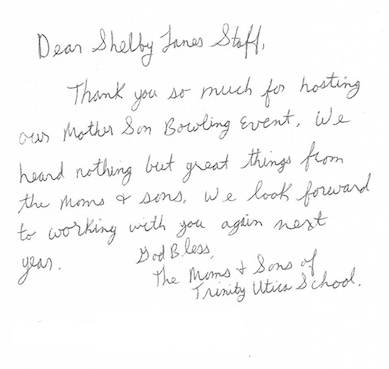 Dear Shelby Lanes Staff,
Thank you so much for hosting
our Mother Son Bowling Event. We
heard nothing but great things from
the Moms & sons. We look forward
to working with you again next
year.
God Bless,
The Moms & Sons of
Trinity Utica School.